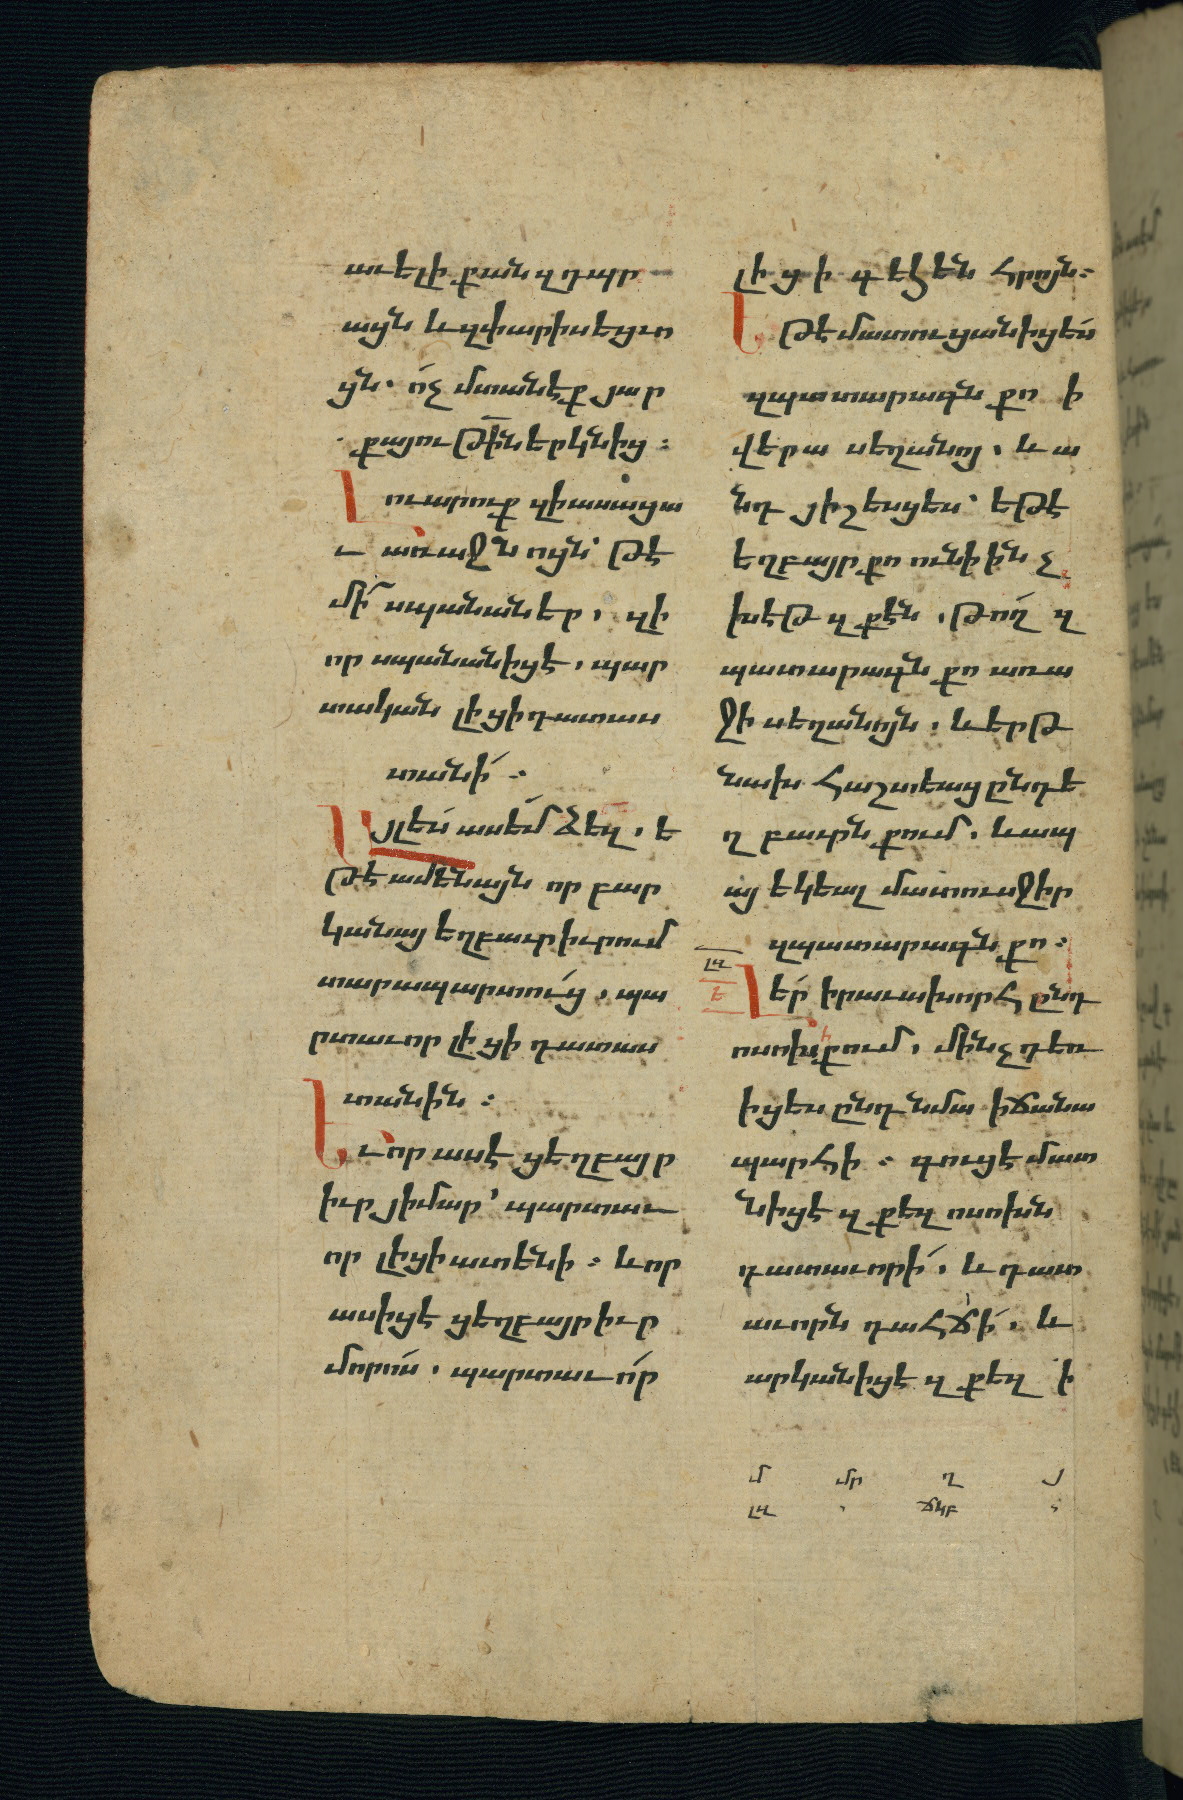 ռւելի քան զդպր
ացն եւ զփարիսեցւո
ցն. ո՛չ մտանէք յար
քայութի՟ն երկնից։
Լուարուք զի ասացա
ւ առաջնոցն՝ թէ
մի՛ սպանաներ, զի
որ սպանանիցէ, պար
տական լիցի դատաս
տանի՛։
Այլ ես ասեմ ձեզ, ե
թէ ամենայն որ բար
կանայ եղբաւր իւրում
տարապարտո՛ւց, պա
րտաւոր լիցի դատաս
տանին։
Եւ որ ասէ ցեղբայր
իւր յիմար՝ պարտաւ
որ լիցի ատենի։ եւ որ
ասիցէ ցեղբայր իւր
մորոս, պարտաւո՛ր
լիցի ի գեհեն հրոյն։
Եթէ մատուցանիցես
զպատարագն քո ի
վերա սեղանոյ, եւ ա
նդ յիշեսցես՝ եթէ
եղբայր քո ունի ինչ
խէթ զքէն, թո՛ղ զ
պատարագն քո առա
ջի սեղանոյն, եւ երթ
նախ հաշտեաց ընդ ե
ղբաւրն քում, եւ ապ
այ եկեալ մատուսջիր
զպատարագն քո։
լզ
ե
Լե՛ր իրաւախորհ ընդ
ոսոխի քում, մինչդեռ
իցես ընդ նմա ի ճանա
պարհի։ գուցէ մատ
նիցէ զքեզ ոսոխն
դատաւորի՛, եւ դատ
աւորն դահճի՛, եւ
արկանիցէ զքեզ ի
մ մր ղ յ
լզ ճկբ